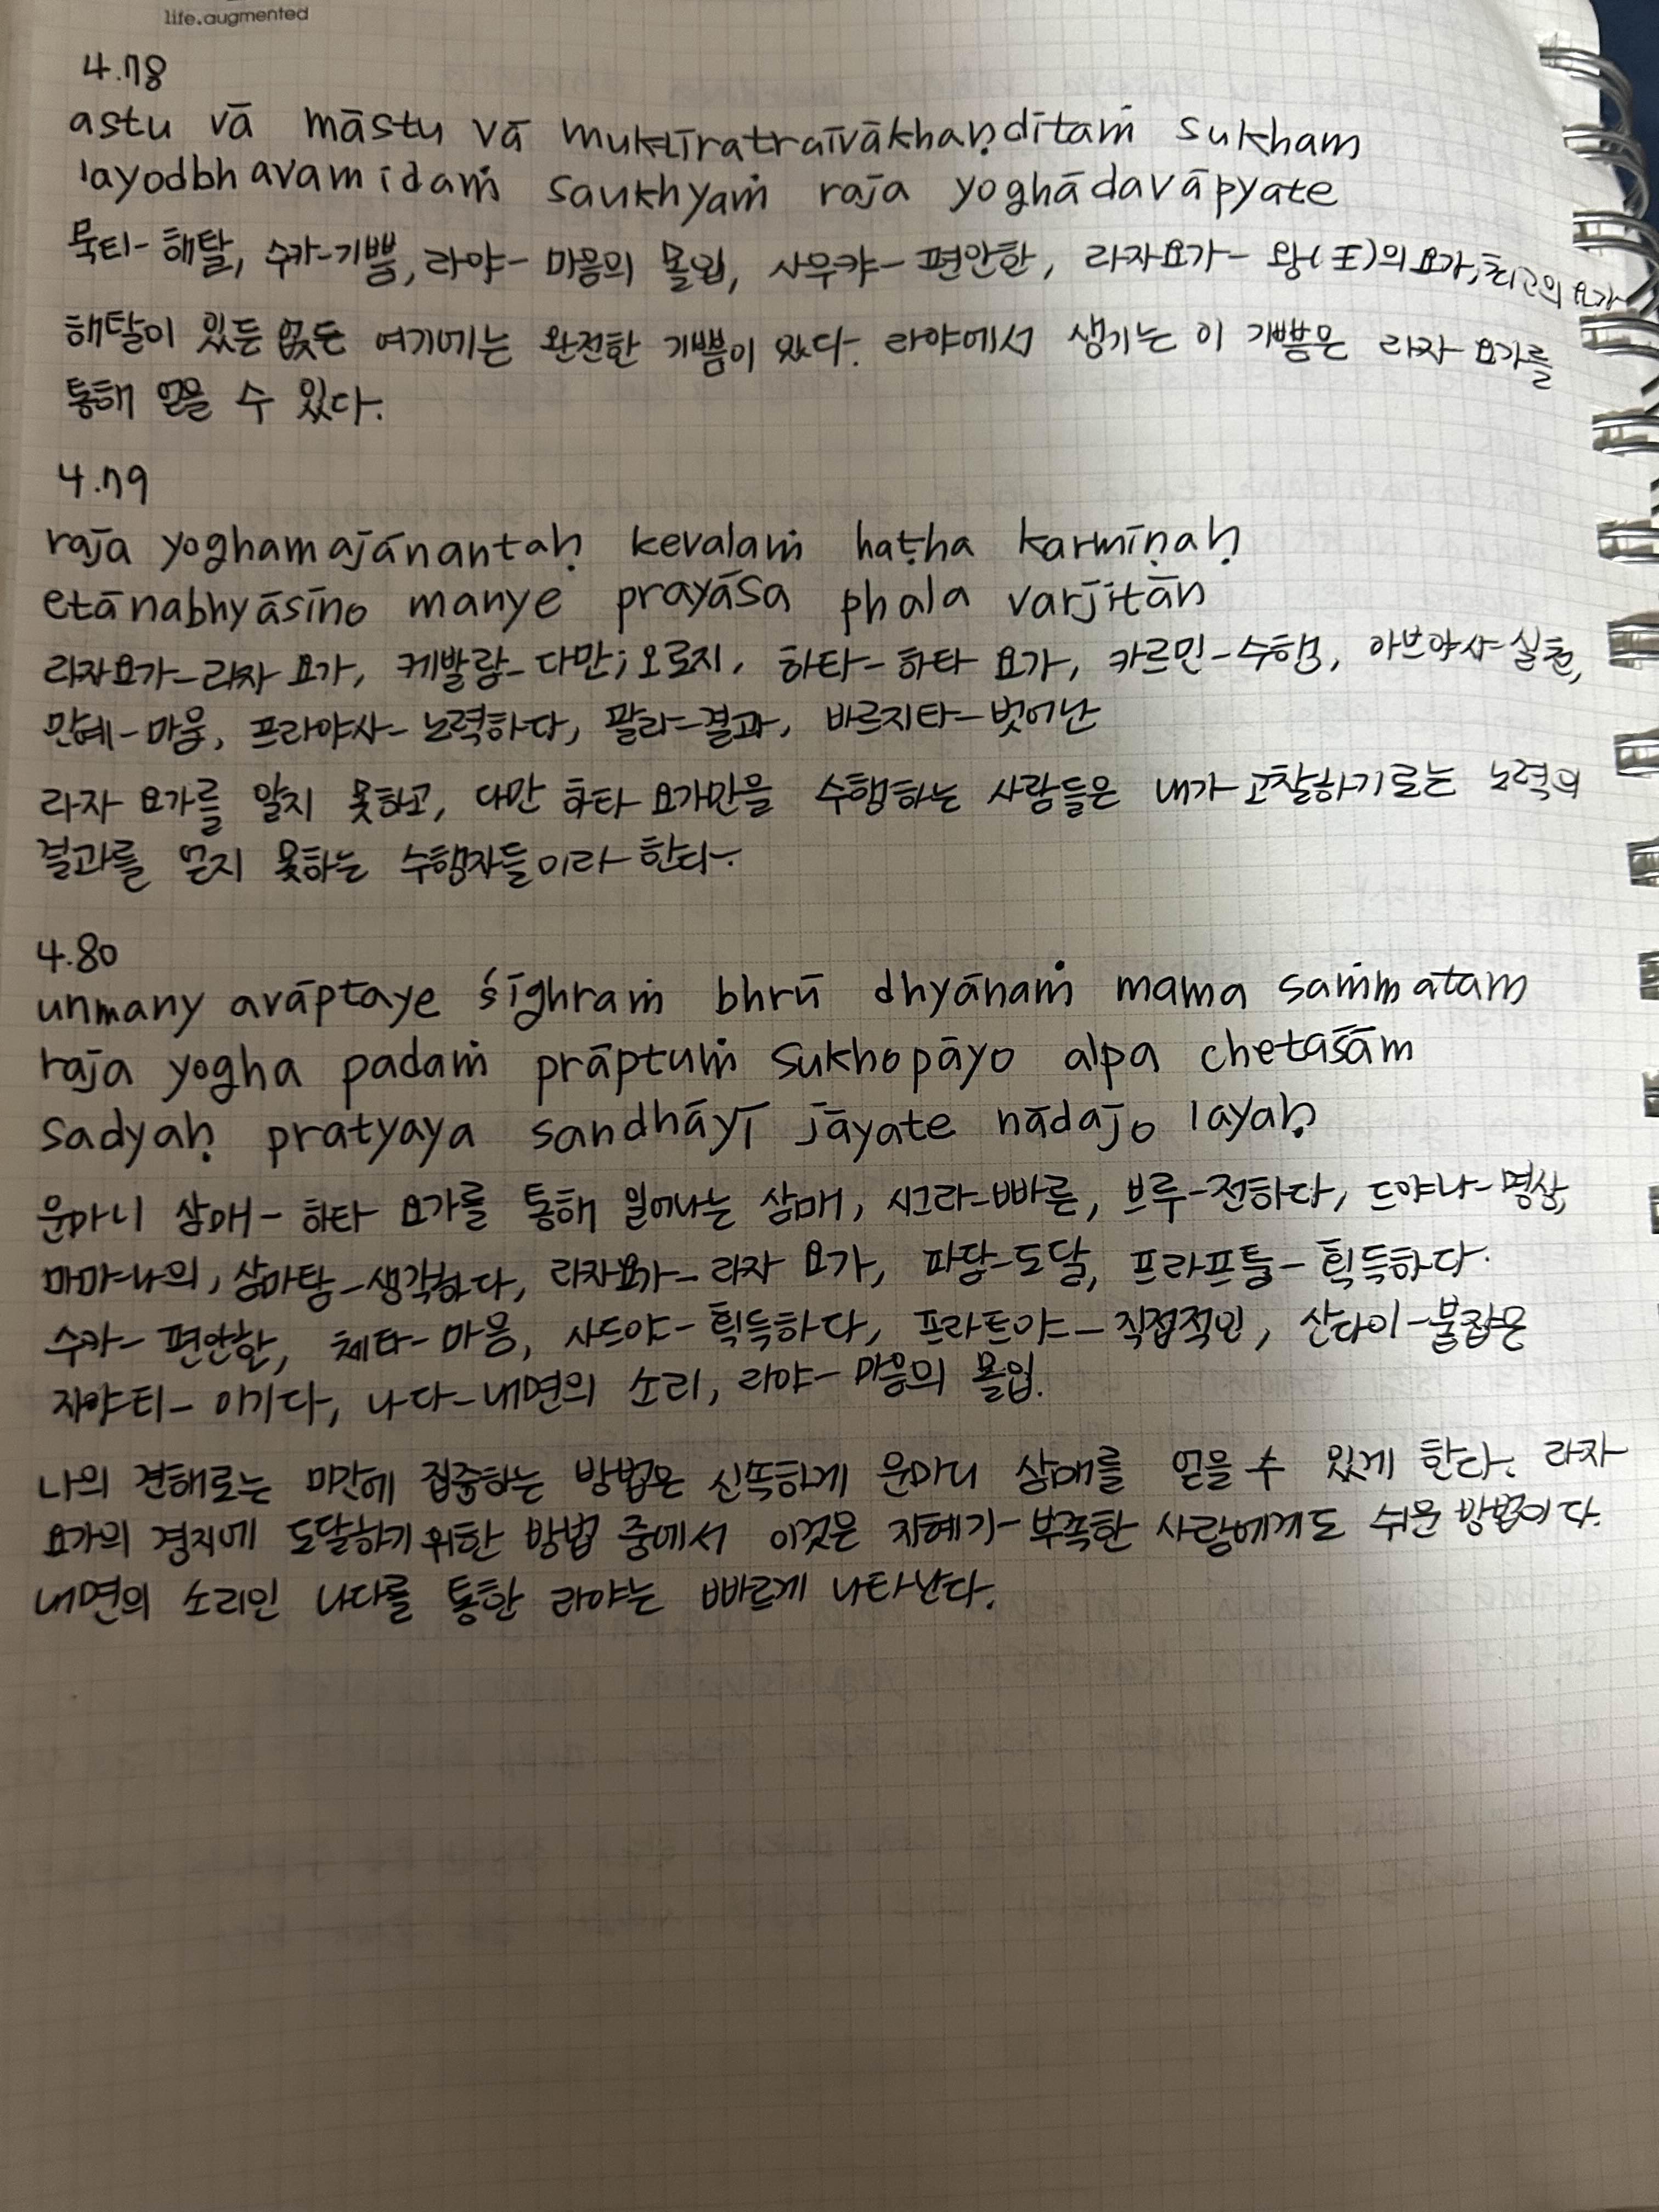 life.augmented
4.78
astu vā māstu vā muktīratraīvākhaṇditaṁ sukham
layodbhavamidaṁ saukhyaṁ rāja yoghādavāpyate
묵티-해탈, 수카-기쁨, 라야-마음의 몰입, 사우캬-편안한, 라자요가-왕(王)의 요가, 최고의 요가
해탈이 있든 없든 여기에는 완전한 기쁨이 있다. 라야에서 생기는 이 기쁨은 라자 요가를
통해 얻을 수 있다.
4.79
rāja yoghamajānantaḥ kevalaṁ haṭha karmīṇaḥ
etānabhyāsīno manye prayāsa phala varjitān
라자요가-라자 요가, 케발람-다만; 오로지, 하타-하타 요가, 카르민-수행, 아브야사-실천,
만예-마음, 프라야사-노력하다, 팔라-결과, 바르지타-벗어난
라자 요가를 알지 못하고, 다만 하타 요가만을 수행하는 사람들은 내가 고찰하기로는 노력의
결과를 얻지 못하는 수행자들이라 한다.
4.80
unmany avāptaye śīghraṁ bhrū dhyānaṁ mama saṁmatam
rāja yogha padaṁ prāptuṁ sukhopāyo alpa chetasām
sadyaḥ pratyaya sandhāyī jāyate nādajo layaḥ
운마니 삼매-하타 요가를 통해 일어나는 삼매, 시그라-빠른, 브루-전하다, 드야나-명상,
마마-나의, 삼마탐-생각하다, 라자요가-라자 요가, 파담-도달, 프라프툼-획득하다.
수카-편안함, 체타-마음, 사드야-획득하다, 프라트야-직접적인, 산다이-붙잡은
자야티-이기다, 나다-내면의 소리, 라야-마음의 몰입.
나의 견해로는 미간에 집중하는 방법은 신뜩하게 운마니 삼매를 얻을 수 있게 한다. 라자
요가의 경지에 도달하기 위한 방법 중에서 이것은 지혜가 부족한 사람에게도 쉬운 방법이다.
내면의 소리인 나다를 통한 라야는 빠르게 나타난다.